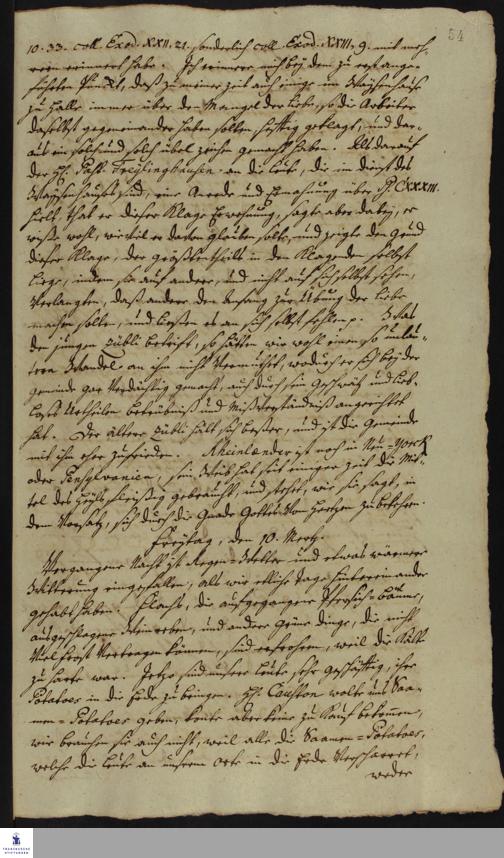 54
10. 33. coll. Exod. XXII. 21. sonderlich coll. Exod. XXIII, 9. mit meh,
rern erinnert habe. Ich erinnere mich bey dem zu erst ange-
führten Punct, daß zu meiner Zeit auch einige im Waysenhause
zu Halle immer über den Mangel der Liebe, so die Arbeiter
daselbst gegeneinander haben solten, hefftig geklagt, und dar-
aus ein solch und solch übel zeichen gemacht haben. Als darauf
der H. Past. Freylinghausen an die Leute, die in dienst des
Waysenhauses sind, eine Anrede und Ermahnung über Ps. CXXXIII.
hielt, that er dieser Klage Erwehnung, sagte aber dabey, er
wisse wohl, wie viel er davon glauben solte, und zeigte den Grund
dieser Klage, der größtentheils in den Klagenden selbst
liege, indem sie auf andere, und nicht auf sich selbst sehen,
verlangten, daß andere den Anfang zur Übung der Liebe
machen solten, und ließen es an sich selbst fehlen p. Was
den jungen Zübli betrift, so hätten wir wohl einen so unlau-
tern Wandel an ihm nicht vermuthet, wodurch er sich bey der
gemeinde gar verdächtig gemacht, auch durch sein Geschwätz und lieb-
loses Urtheilen betrübniß und Mißverständniß angerichtet
hat. Der ältere Zübli hält sich besser, und ist die Gemeinde
mit ihm eher zufrieden. Rheinlænder ist noch in Neu-York
oder Pensylvanien, sein Weib hat seit einiger zeit die Mit-
tel des Heyls fleißig gebraucht, und stehet, wie sie sagt, in
dem Vorsatz, sich durch die Gnade Gottes von Hertzen zu bekehren.
Freytag, den 10. Mertz.
Vergangene Nacht ist Regen-Wetter und etwas wärmere
Witterung eingefallen, als wir etliche Tage hintereinander
gehabt haben. Flachs, die aufgegangene Pfersich-bäume,
ausgeschlagene Weinreben, und andere grüne dinge, die nicht
viel frost vertragen können, sind erfrohren, weil die Kälte
zu harte war. Jetzo sind unsere Leute sehr geschäfftig, ihre
Potatoes in die Erde zu bringen. H. Causton wolte uns Saa-
men-Potatoes geben, konte aber keine zu Kauf bekommen,
wir brauchen sie auch nicht, weil alle die Saamen-Potatoes,
welche die Leute an unserm orte in die Erde verscharret,
weder
FRANCKESCHE STIFTUNGEN